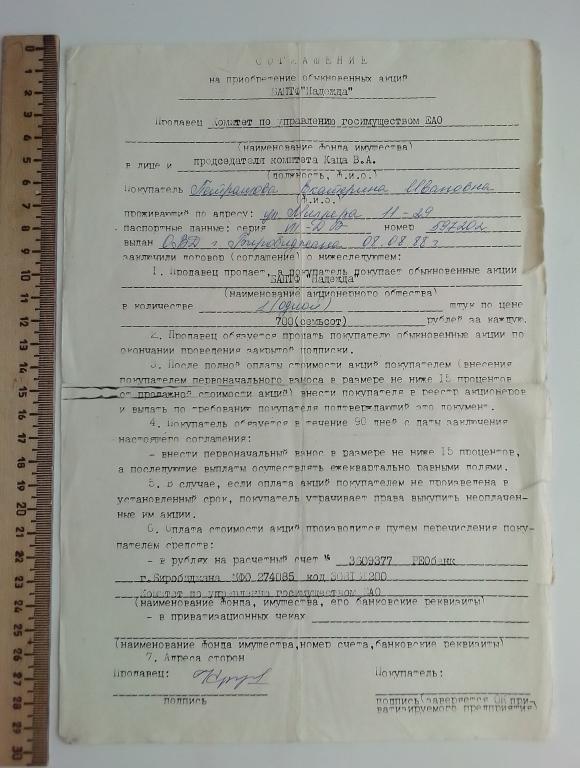 СОГЛАШЕНИЕ
на приобретение обыкновенных акций
БАПТФ "Надежда"
Продавец Комитет по управлению госимуществом ЕАО
(наименование фонда имущества)
в лице и председателя комитета Каца В.А.
(должность, Ф.и.о.)
Покупатель Екатерина Ивановна
(Ф.и.о.)
проживающий по адресу: ул Миллера 11-29
Паспортные данные: серия номер 597202
выдан ОВД г. Биробиджана 08.08.88 г
заключили договор (соглашение) о нижеследующем:
1. Продавец продает, а покупатель покупает обыкновенные акции
БАПТФ "Надежда"
(наименование акционерного общества)
в количестве 1 (одной) штук по цене
700(семьсот) рублей за каждую.
2. Продавец обязуется продать покупателю обыкновенные акции по
окончании проведения закрытой подписки.
3. После полной оплаты стоимости акций покупателем (внесения
покупателем первоначального взноса в размере не ниже 15 процентов
от продажной стоимости акций) внести покупателя в реестр акционеров
и выдать по требованию покупателя подтверждающий это документ.
4. Покупатель обязуется в течение 90 дней с даты заключения
настоящего соглашения:
- внести первоначальный взнос в размере не ниже 15 процентов,
а последующие выплаты осуществлять ежеквартально равными долями.
5. В случае, если оплата акций покупателем не произведена в
установленный срок, покупатель утрачивает права выкупить неоплачен-
ные им акции.
6. Оплата стоимости акций производится путем перечисления поку-
пателем средств:
- в рублях на расчетный счет № 3609377 РЕОбанк
г.Биробиджана МФО 274085 код
Комитет по управлению госимуществом ЕАО
(наименование фонда, имущества, его банковские реквизиты)
- в приватизационных чеках
(наименование фонда имущества, номер счета, банковские реквизиты)
7. Адреса сторон
Продавец: Покупатель:
подпись подпись(заверяется ОК при-
ватизируемого предприятия)
0 1 2 3 4 5 6 7 8 9 10 11 12 13 14 15 16 17 18 19 20 21 22 23 24 25 26 27 28 29 30